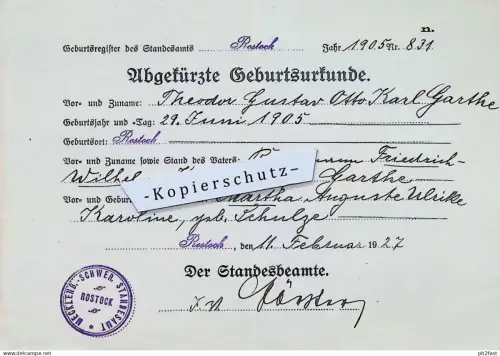 n.
Geburtsregister des Standesamts Rostock Jahr 1905 Nr. 831.
Abgekürzte Geburtsurkunde.
Vor- und Zuname: Theodor Gustav Otto Karl Garthe
Geburtsjahr und -Tag: 29. Juni 1905
Geburtsort: Rostock
Vor- und Zuname sowie Stand des Vaters: Friedrich-
Wilhel Garthe
-Kopierschutz-
Vor- und Gebur Martha Auguste Ulrike
Karoline, geb. Schulze
Rostock, den 11. Februar 1927
Der Standesbeamte.
MECKLENB.-SCHWER. STANDESAMT
ROSTOCK
© pb2fast